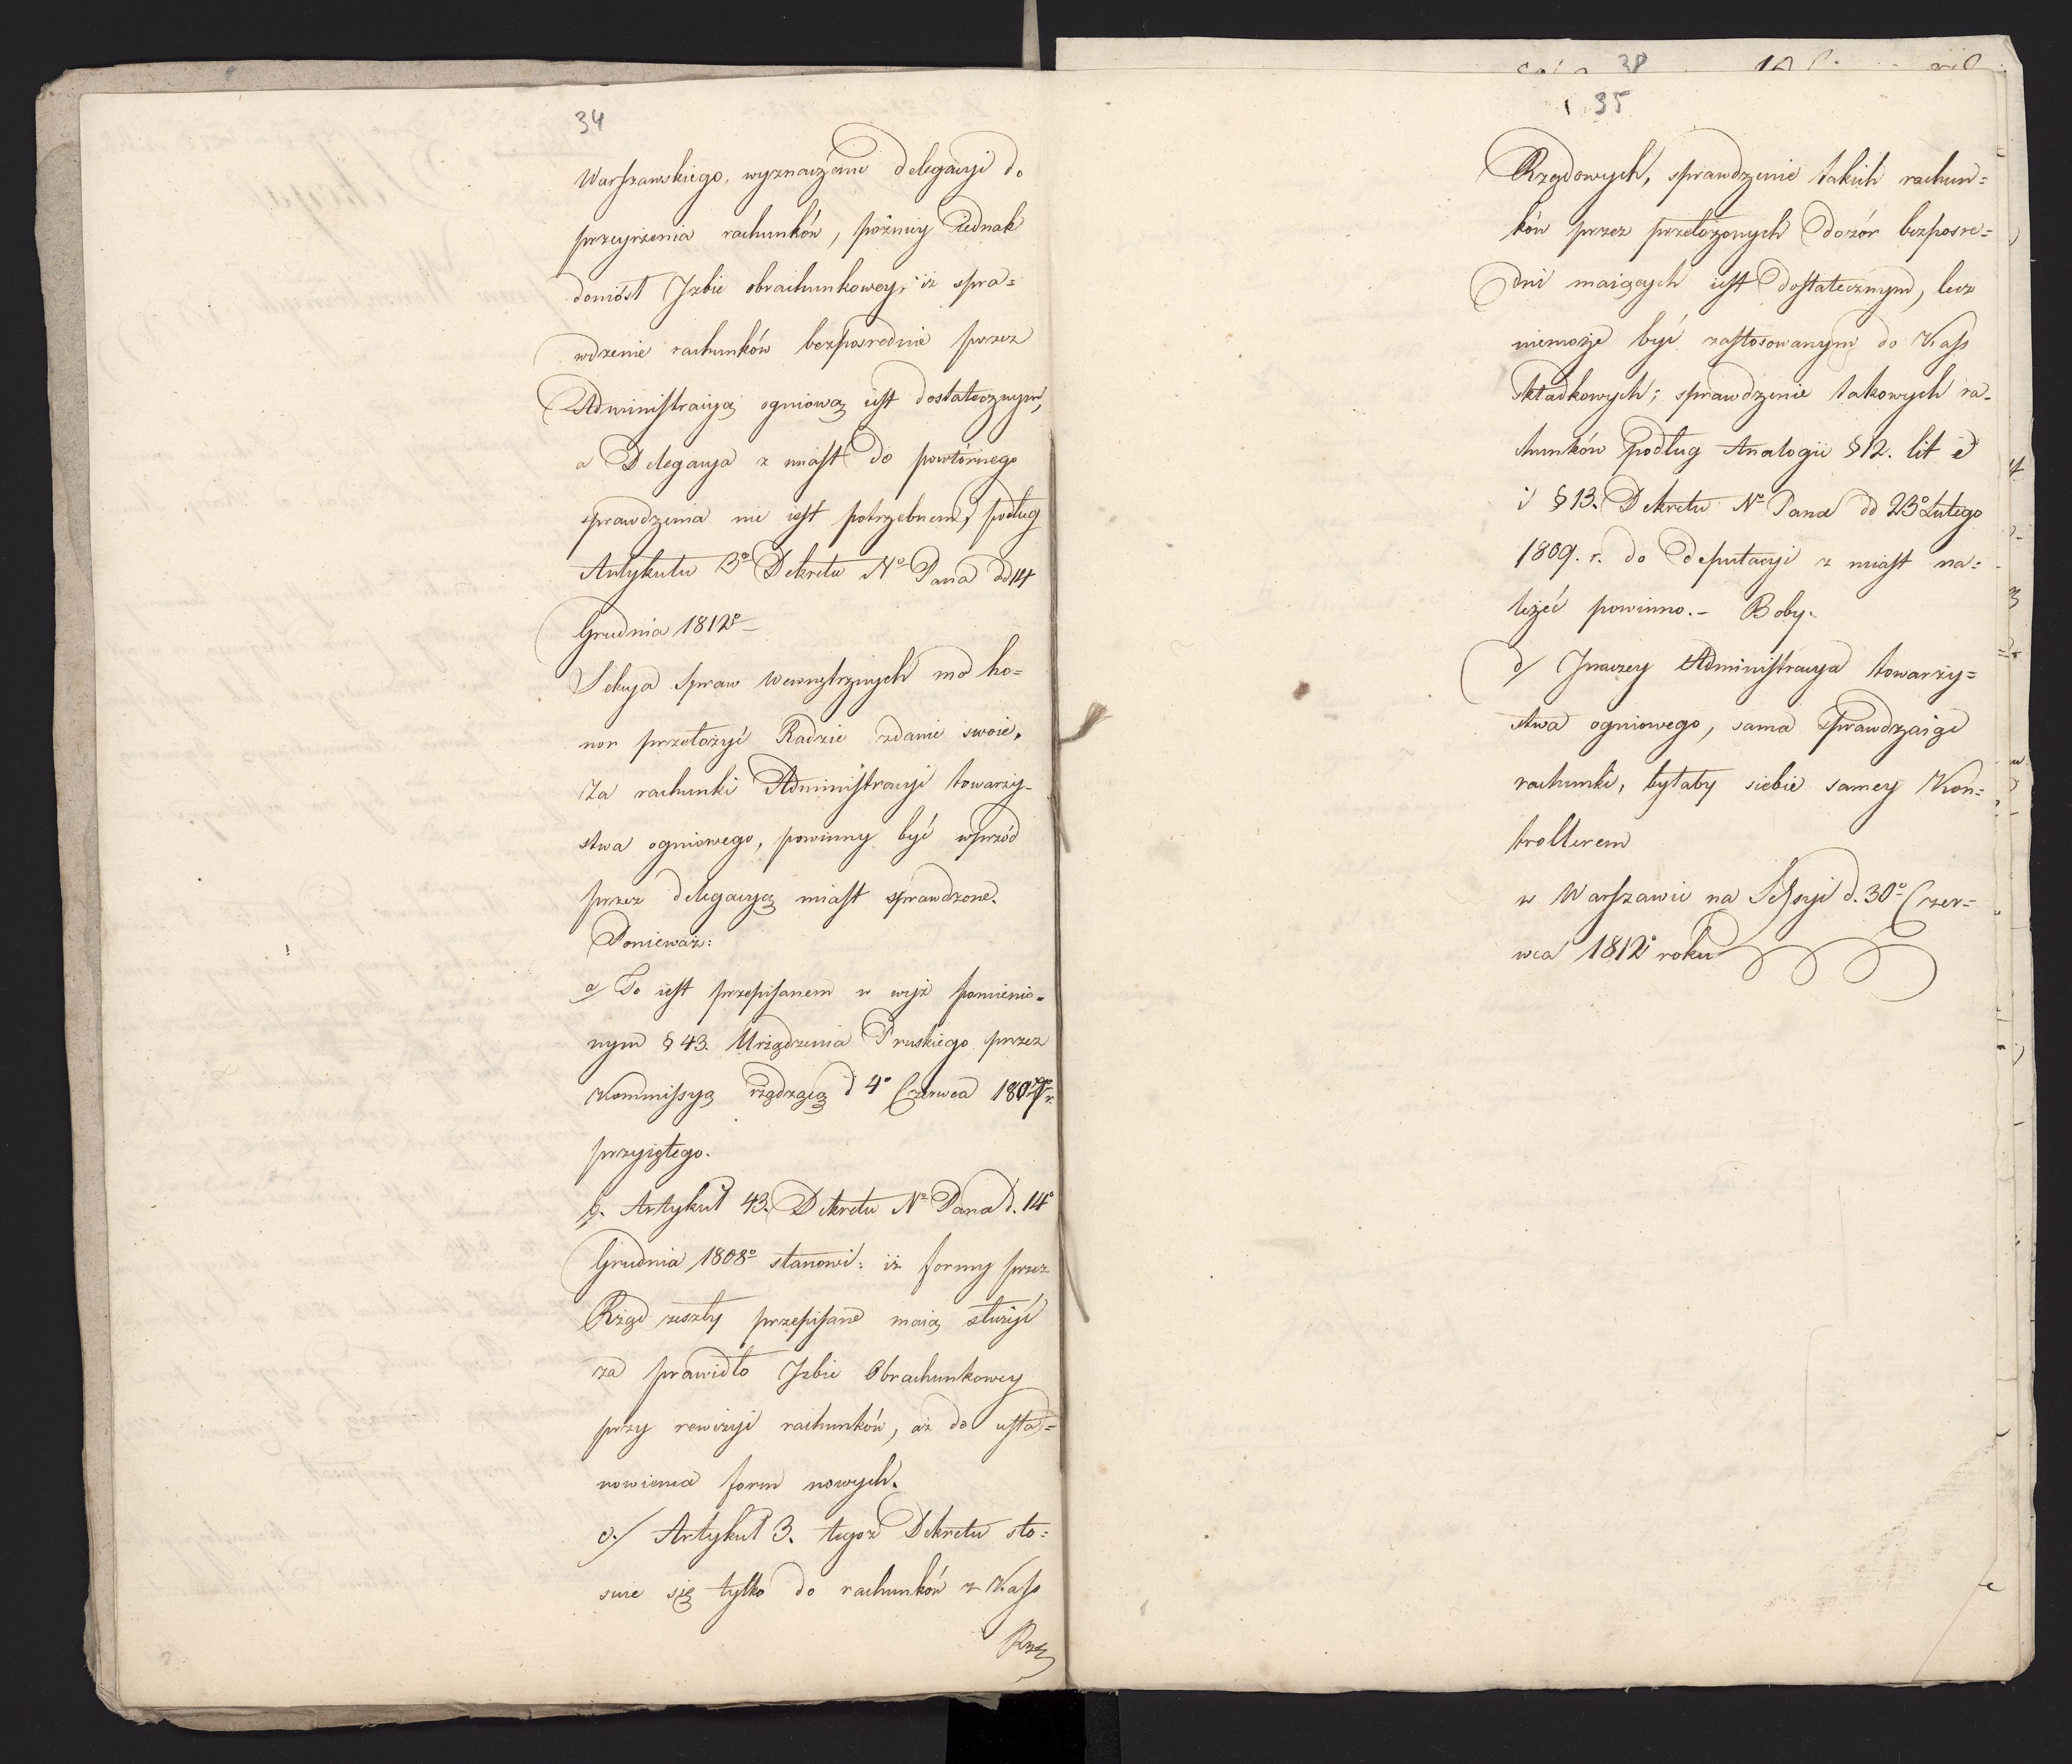 34
Warszawskiego, wyznaczenie delegacyi do
przeyrzenia rachunków, późniey iednak
doniósł Izbie obrachunkowey, iż spra=
wdzenie rachunków bezposrednie przez
Administracyą ogniową iest dostatecznym,
a Delegacya z miast do powtórnego
sprawdzenia nie iest potrzebnem, podług
Artykułu 3º Dekretu Nº Pana dd 14
Grudnia 1812º
Sekcya Spraw Wewnętrznych ma ho=
nor przełożyć Radzie zdanie swoie,
Za rachunki Administracyi towarzy-
stwa ogniowego, powinny być wprzód
przez delegacyą miast sprawdzone.
Ponieważ:
a/ To iest przepisanem w wyż pomienio=
nym § 43. Urządzenia Pruskiego przez
Kommissyą rządzącą d 4º Czerwca 1807º r
przyiętego.
b. Artykuł 43. Dekretu Nº Pana d. 14º
Grudnia 1808º stanowi: iż formy przez
Rząd zeszły przepisane maią służyć
za prawidło Izbie Obrachunkowey
przy rewizyi rachunków, aż do usta=
nowienia form nowych.
c./ Artykuł 3. tegoż Dekretu sto=
suie się tylko do rachunków z Kass
Rzą
38
35
Rządowych, sprawdzenie takich rachun=
ków przez przełożonych dozór bezposre=
dni maiących iest dostatecznym, lecz
niemoże być zastosowanym do Kass
składkowych; sprawdzenie takowych ra-
chunków podług Analogii § 12. lit e
i § 13. Dekretu Nº Pana dd 23º Lutego
1809. r. do deputacyi z miast na=
leżeć powinno.- Boby.
d/ Inaczey Administracya towarzy=
stwa ogniowego, sama sprawdzaiąc
rachunki, byłaby siebie samey Kon=
trollerem
w Warszawie na Sessyi d. 30º Czer=
wca 1812º roku